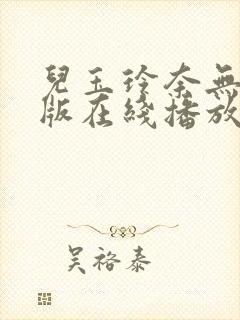 兒玉玲奈無
版在綫播放
吴裕泰